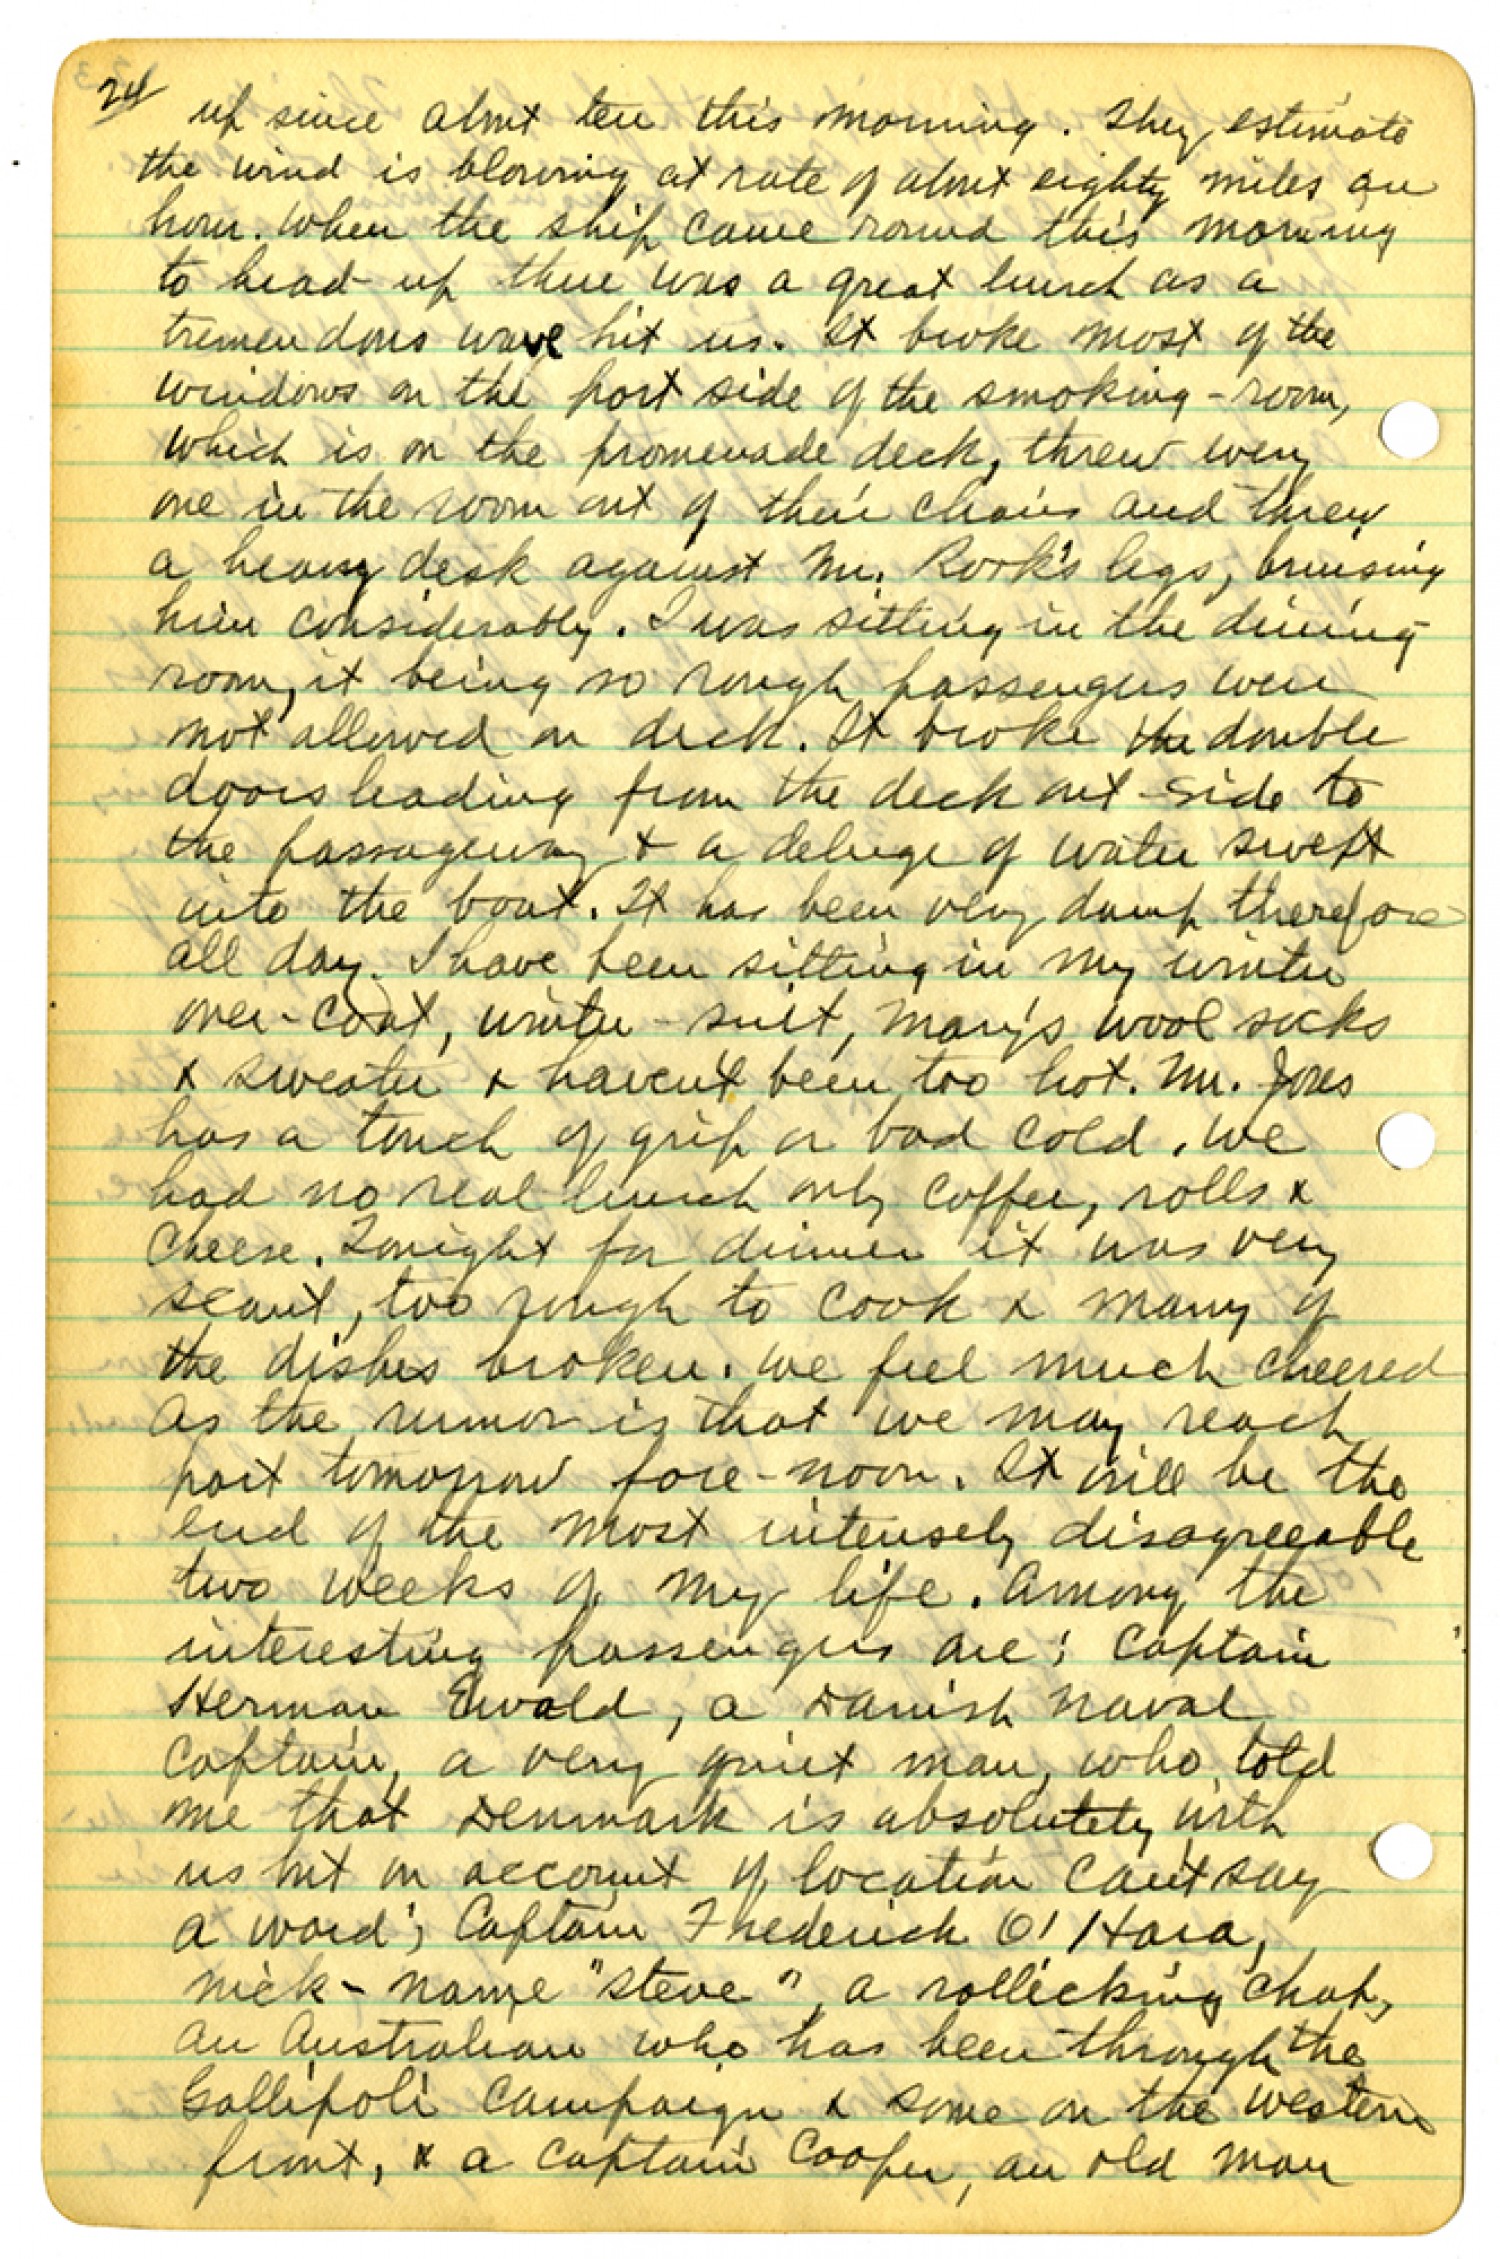 24
up since about ten this morning. They estimate
the wind is blowing at rate of about eighty miles an
hour. When the ship came round this morning
to head-up there was a great lurch as a
tremendous wave hit us. It broke most of the
windows on the port side of the smoking-room,
which is on the promenade deck, threw every
one in the room out of their chairs and threw
a heavy desk against Mr. Rork's legs, bruising
him considerably. I was sitting in the dining
room, it being so rough passengers were
not allowed on deck. It broke the double
doors leading from the deck out-side to
the passageway & a deluge of water swept
into the boat. It has been very damp therefore
all day. I have been sitting in my winter
over-coat, winter-suit, Mary's wool socks
& sweater & haven't been too hot. Mr. Jones
has a touch of grip or bad cold. We
had no real lunch only coffee, rolls &
cheese. Tonight for dinner it was very
scant, too rough to cook & many of
the dishes broken. We feel much cheered
as the rumor is that we may reach
port tomorrow fore-noon. It will be the
end of the most intensely disagreeable
two weeks of my life. Among the
interesting passengers are: Captain
Herman Ewald, a Danish Naval
Captain, a very quiet man, who told
me that Denmark is absolutely with
us but on account of location can't say
a word; Captain Frederick O'Hara,
nick-name "Steve", a rollicking chap,
an Australian who has been through the
Gallipoli Campaign & some on the western
front, & a Captain Cooper, an old man